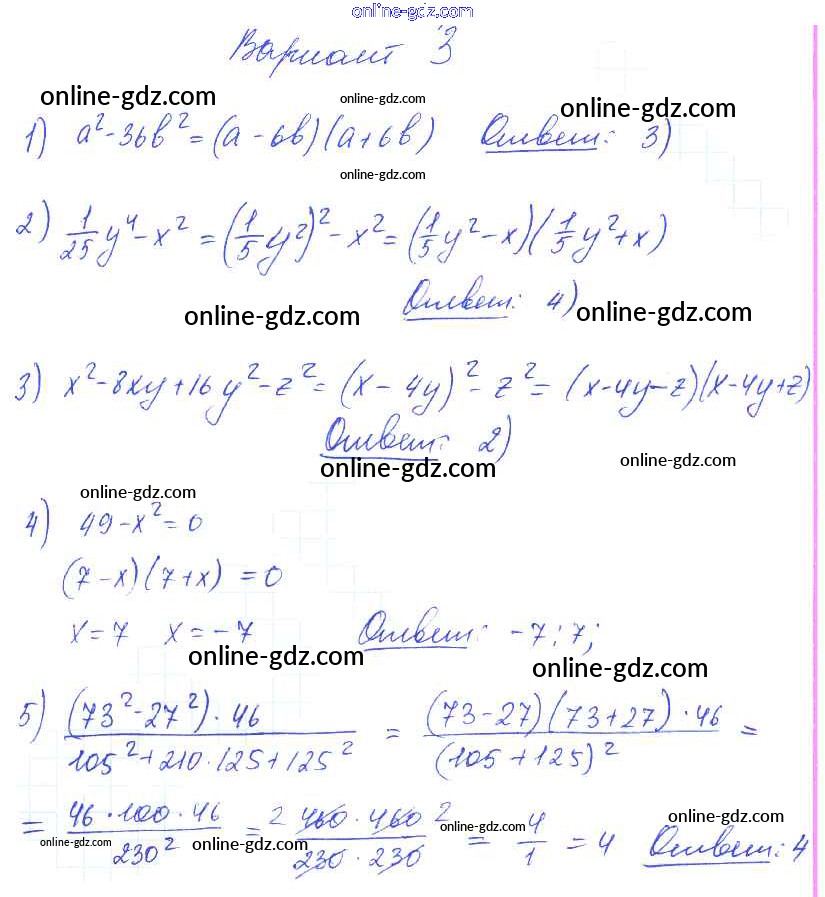 online-gdz.com
Вариант 3
online-gdz.com online-gdz.com online-gdz.com
1) a² - 36b² = (a - 6b)(a + 6b) Ответ: 3)
online-gdz.com
2) 1/25 y⁴ - x² = (1/5 y²)² - x² = (1/5 y² - x)(1/5 y² + x)
Ответ: 4)
online-gdz.com online-gdz.com
3) x² - 8xy + 16y² - z² = (x - 4y)² - z² = (x - 4y - z)(x - 4y + z)
Ответ: 2)
online-gdz.com online-gdz.com
online-gdz.com
4) 49 - x² = 0
(7 - x)(7 + x) = 0
x = 7 x = -7 Ответ: -7; 7;
online-gdz.com online-gdz.com
5) (73² - 27²) · 46 / 105² + 210 · 125 + 125² = (73 - 27)(73 + 27) · 46 / (105 + 125)² =
= 46 · 100 · 46 / 230² = 2 460 · 460 2 / 230 · 230 = 4/1 = 4 Ответ: 4
online-gdz.com online-gdz.com online-gdz.com online-gdz.com